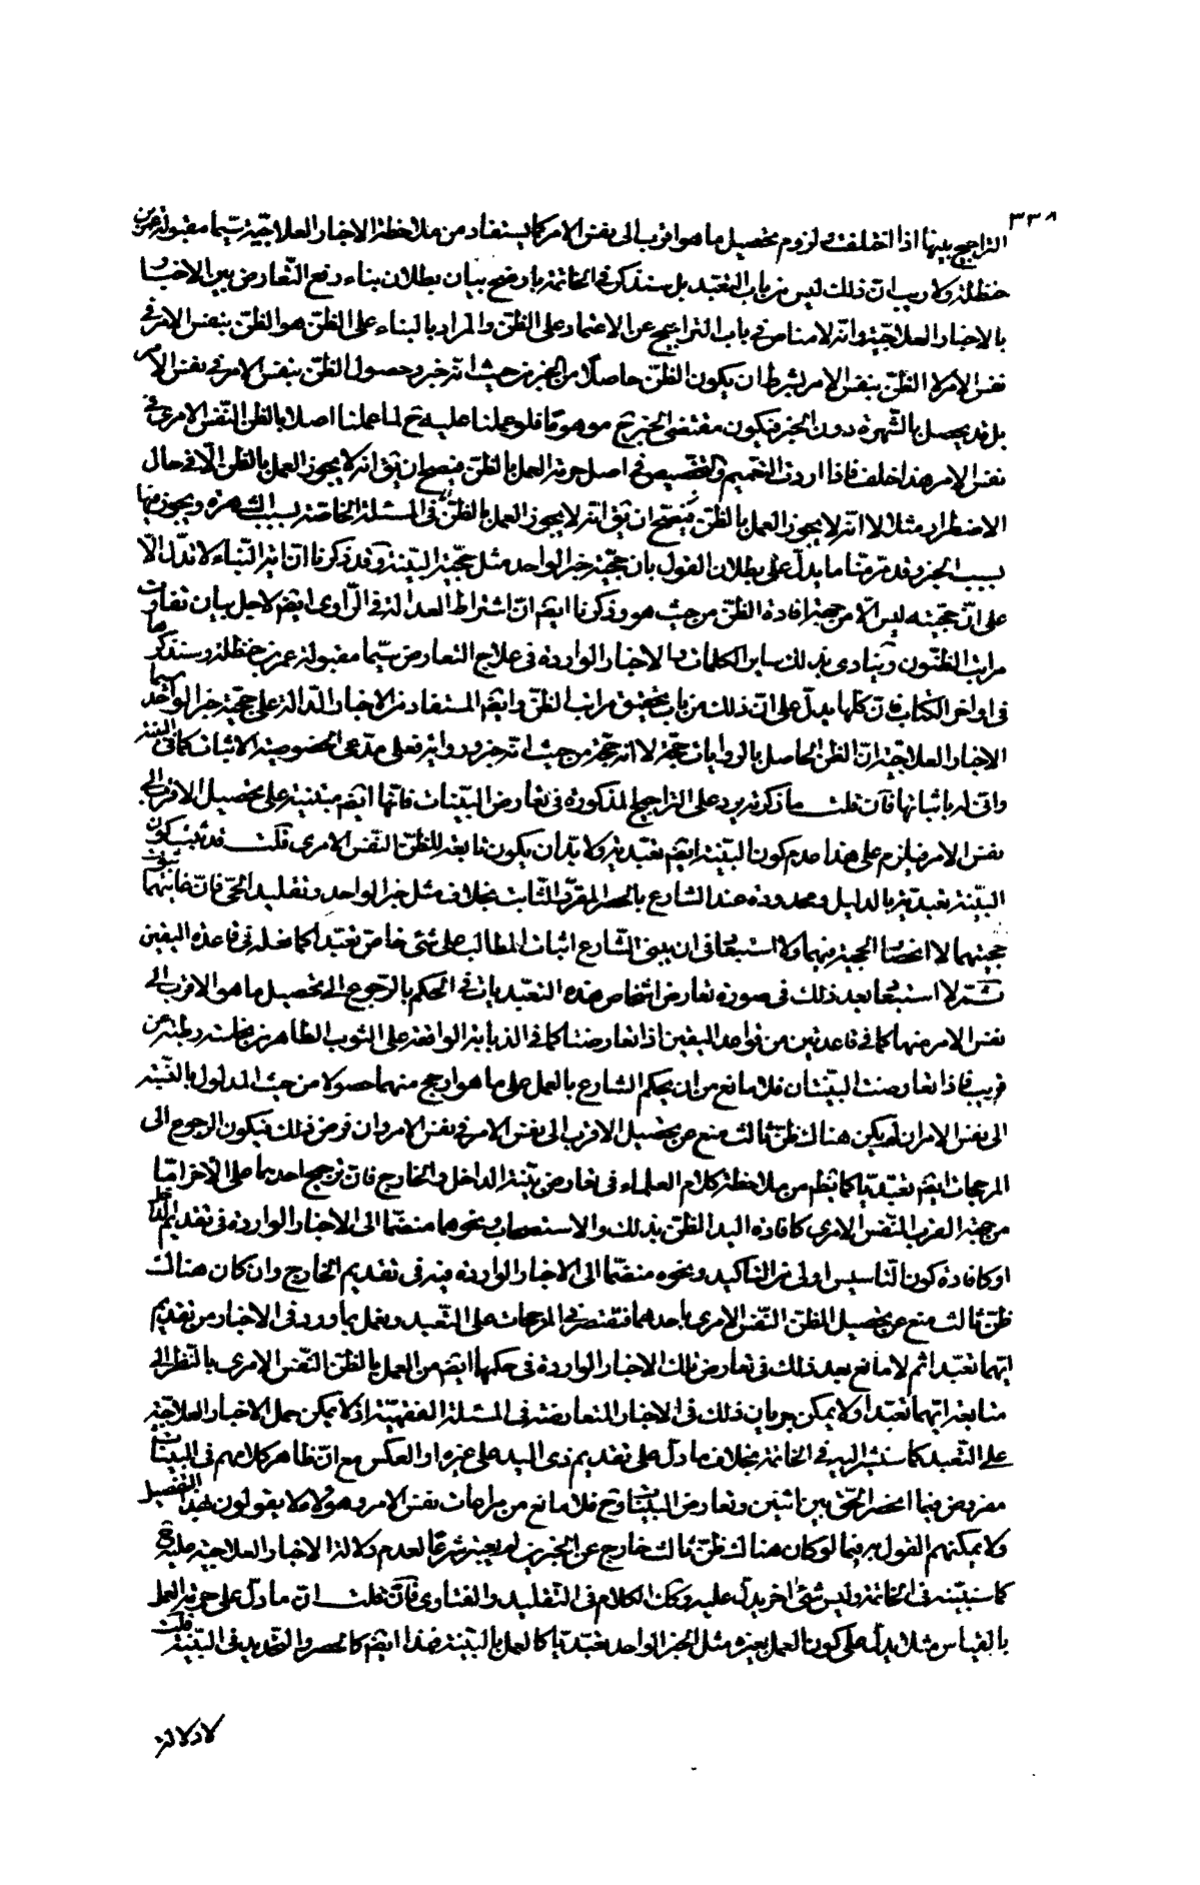 ٣٣٨
التراجيح بينها اذا اختلفت لزوم تحصيل ما هو اقرب الى نفس الامر كما يستفاد من ملاحظة الاخبار العلاجية سيما مقبولة عمر بن
حنظلة ولا ريب ان ذلك ليس من باب التعبد بل سنذكر في الخاتمة باوضح بيان بطلان بناء دفع التعارض بين الاخبار
بالاخبار العلاجية وانه لا مناص في باب التراجيح عن الاعتماد على الظن والمراد بالبناء على الظن هو الظن بنفس الامر في
نفس الامر لا الظن بنفس الامر بشرط ان يكون الظن حاصلا من الخبر من حيث انه خبر وحصول الظن بنفس الامر في نفس الامر
بل قد يحصل بالشهرة دون الخبر فيكون مقتضى الخبر ح موهوما فلو عملنا عليه ح لما عملنا اصلا بالظن النفس الامرى في
نفس الامر هذا خلف فاذا اردت التعميم والتخصيص في اصل حرمة العمل بالظن فيصح ان يق انه لا يجوز العمل بالظن الا في حال
الاضطرار مثلا لا انه لا يجوز العمل بالظن فيصح ان يق انه لا يجوز العمل بالظن في المسئلة الخاصة بسبب الشهرة ويجوز فيها
بسبب الخبر وقد مر منا ما يدل على بطلان القول بان حجية خبر الواحد مثل حجية البينة وقد ذكرنا ان اية النباء لا تدل الا
على ان حجيته ليس الا من جهة افادة الظن من حيث هو وذكرنا ايضم ان اشتراط العدالة في الراوى ايضم لاجل بيان تفاوت
مراتب الظنون وينادى بذلك ساير الكلمات والاخبار الواردة في علاج التعارض سيما مقبولة عمر بن حنظلة وسنذكرها
في اواخر الكتاب فان كلها يدل على ان ذلك من باب تحقيق مراتب الظن وايضم المستفاد من الاخبار الدالة على حجية خبر الواحد سيما
الاخبار العلاجية ان الظن الحاصل بالروايات حجة لا انه حجة من حيث انه خبر ورواية فعلى مدعى الخصوصية الاثبات كما في البينة
وانى له باثباتها فان قلت ما ذكرته يرد على التراجيح المذكورة في تعارض البينات فانها ايضم مبتنية على تحصيل الاقرب الى
نفس الامر فيلزم على هذا عدم كون البينة ايضم تعبدية ولا بد ان يكون تابعة للظن النفس الامرى قلت قد ثبت كون
البينة تعبدية بالدليل ومحدودة عند الشارع بالحصر المقرر الثابت بخلاف مثل خبر الواحد وتقليد الحى فان غايتهما ثبوت
حجيتهما لا انحصار الحجية فيهما ولا استبعاد في ان يبنى الشارع اثبات المطالب على شئ خاص تعبدا كما فعله في قاعدة اليقين
ثم لا استبعاد بعد ذلك في صورة تعارض اشخاص هذه التعبديات في الحكم بالرجوع الى تحصيل ما هو الاقرب الى
نفس الامر منها كما في قاعدتين من قواعد اليقين اذا تعارضتا كما في الذبابة الواقعة على الثوب الطاهر من نجاسة رطبة عن
قريب فاذا تعارضت البينتان فلا مانع من ان يحكم الشارع بالعمل على ما هو ارجح منهما حصولا من حيث المدلول بالنسبة
الى نفس الامر ان لم يكن هناك ظن ثالث منع عن تحصيل الاقرب الى نفس الامر في نفس الامر وان فرض ذلك فيكون الرجوع الى
المرجحات ايضم تعبديا كما يظم من ملاحظة كلام العلماء في تعارض بينة الداخل والخارج فان ترجيح احدهما على الاخر اما
من جهة القرب للنفس الامرى كافادة اليد الظن بذلك والاستصحاب ونحوهما منضما الى الاخبار الواردة في تقديم الداخل
او كافادة كون التاسيس اولى من التاكيد ونحوه منضما الى الاخبار الواردة فيه في تقديم الخارج وان كان هناك
ظن ثالث منع عن تحصيل الظن النفس الامرى باحدهما فنقتصر في المرجحات على التعبد ونعمل بما ورد في الاخبار من تقديم
ايهما تعبدا ثم لا مانع بعد ذلك في تعارض تلك الاخبار الواردة في حكمها ايضم من العمل بالظن النفس الامرى بالنظر الى
متابعة ايهما تعبدا ولا يمكن جريان ذلك في الاخبار المتعارضة في المسئلة الفقهية اذ لا يمكن حمل الاخبار العلاجية
على التعبد كما سنشير اليه في الخاتمة بخلاف ما دل على تقديم ذى اليد على غيره او العكس مع ان ظاهر كلامهم في البينات
مفروض فيما انحصر الحق بين اثنين وتعارض البينتان ح فلا مانع من مراعات نفس الامر وهؤلاء لا يقولون بهذا التفصيل
ولا يمكنهم القول به فيما لو كان هناك ظن ثالث خارج عن الخبرين لم يعتبر شرعا لعدم دلالة الاخبار العلاجية عليه ح
كما سنبينه في الخاتمة وليس شئ اخر يدل عليه وكك الكلام في التقليد والفتاوى فان قلت ان ما دل على حرمة العمل
بالقياس مثلا يدل على كون العمل بغيره مثل الخبر الواحد تعبديا كالعمل بالبينة فهذا ايضم كالحصر والتحديد في البينة قلت
لا دلالة